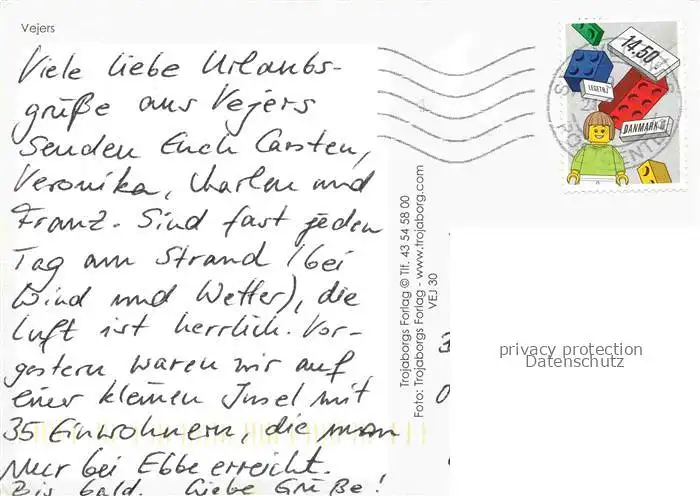 Vejers
Viele liebe Urlaubs-
grüße aus Vejers
senden Euch Carsten,
Veronika, Charlen und
Franz. Sind fast jeden
Tag am Strand (bei
Wind und Wetter), die
Luft ist herrlich. Vor-
gestern waren wir auf
einer kleinen Insel mit
35 Einwohnern, die man
nur bei Ebbe erreicht.
Bis bald. Liebe Grüße!
Trojaborgs Forlag © Tlf. 43 54 58 00
Foto: Trojaborgs Forlag - www.trojaborg.com
VEJ 30
14.50
LEGETØJ
DANMARK
privacy protection
Datenschutz